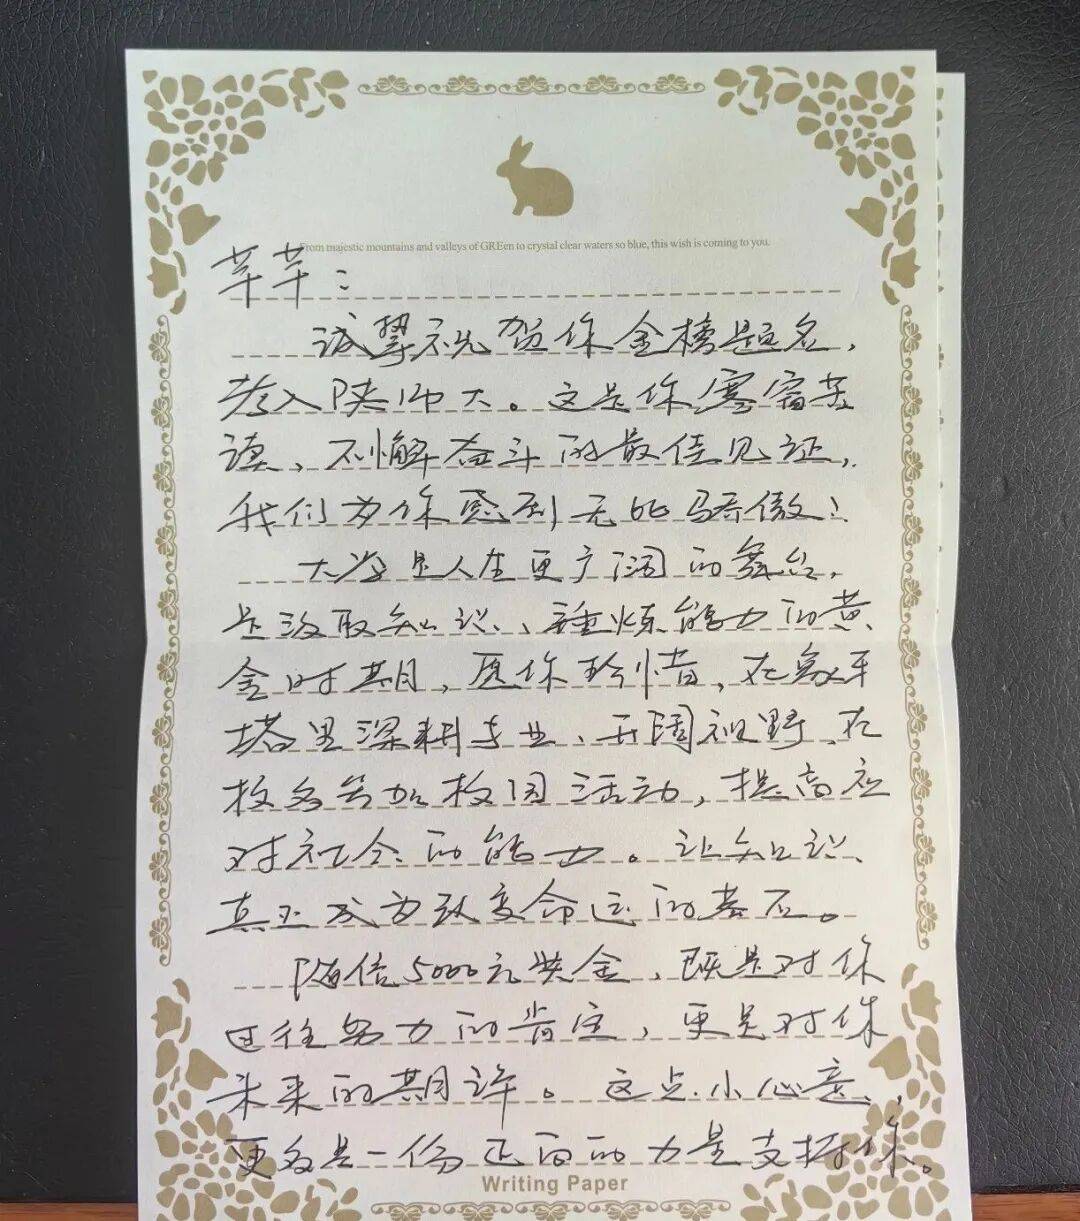 From majestic mountains and valleys of GREen to crystal clear waters so blue, this wish is coming to you.
芊芊：
诚挚祝贺你金榜题名，
考入陕师大。这是你寒窗苦
读、不懈奋斗的最佳见证，
我们为你感到无比骄傲！
大学是人生更广阔的舞台，
是汲取知识、锤炼能力的黄
金时期，愿你珍惜，在象牙
塔里深耕专业、开阔视野、在
校多参加校园活动，提高应
对社会的能力。让知识
真正成为改变命运的基石。
随信5000元奖金，既是对你
过往努力的肯定，更是对你
未来的期许。这点小心意，
更多是一份正面的力量支持你。
Writing Paper